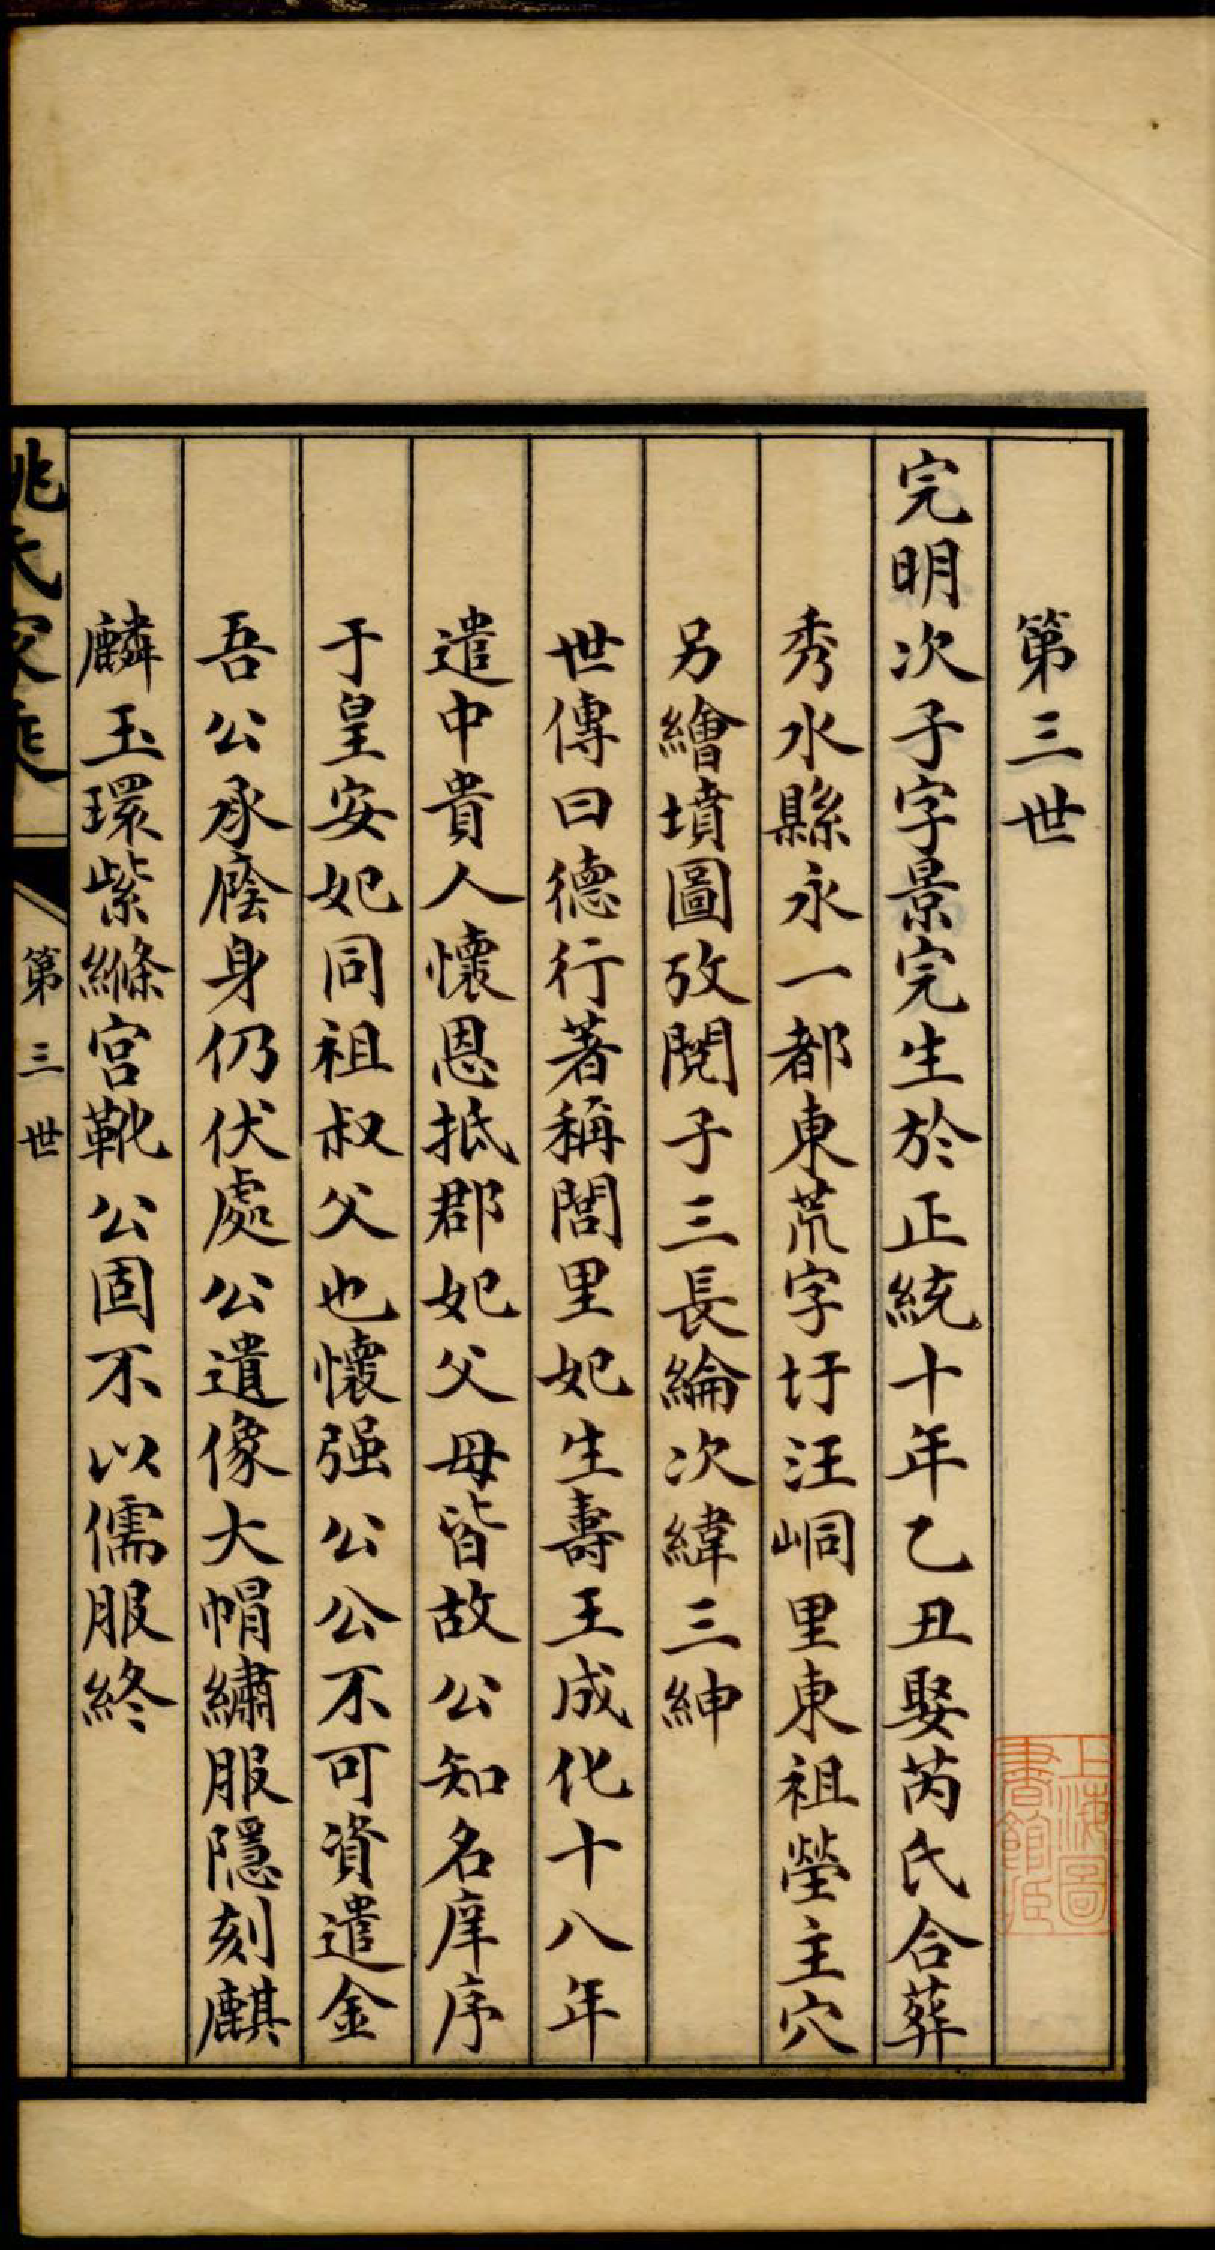 第三世
完明次子字景完生於正統十年乙丑娶芮氏合葬
秀水縣永一都東荒字圩汪峒里東祖塋主穴
另繪墳圖攷閱子三長綸次緯三紳
世傳曰德行著稱閭里妃生壽王成化十八年
遣中貴人懷恩抵郡妃父母皆故公知名庠序
于皇安妃同祖叔父也懷强公公不可資遣金
吾公承廕身仍伏處公遺像大帽繡服隱刻麒
麟玉環紫縧宮靴公固不以儒服終
姚氏家乘
第三世
上海圖
書館藏